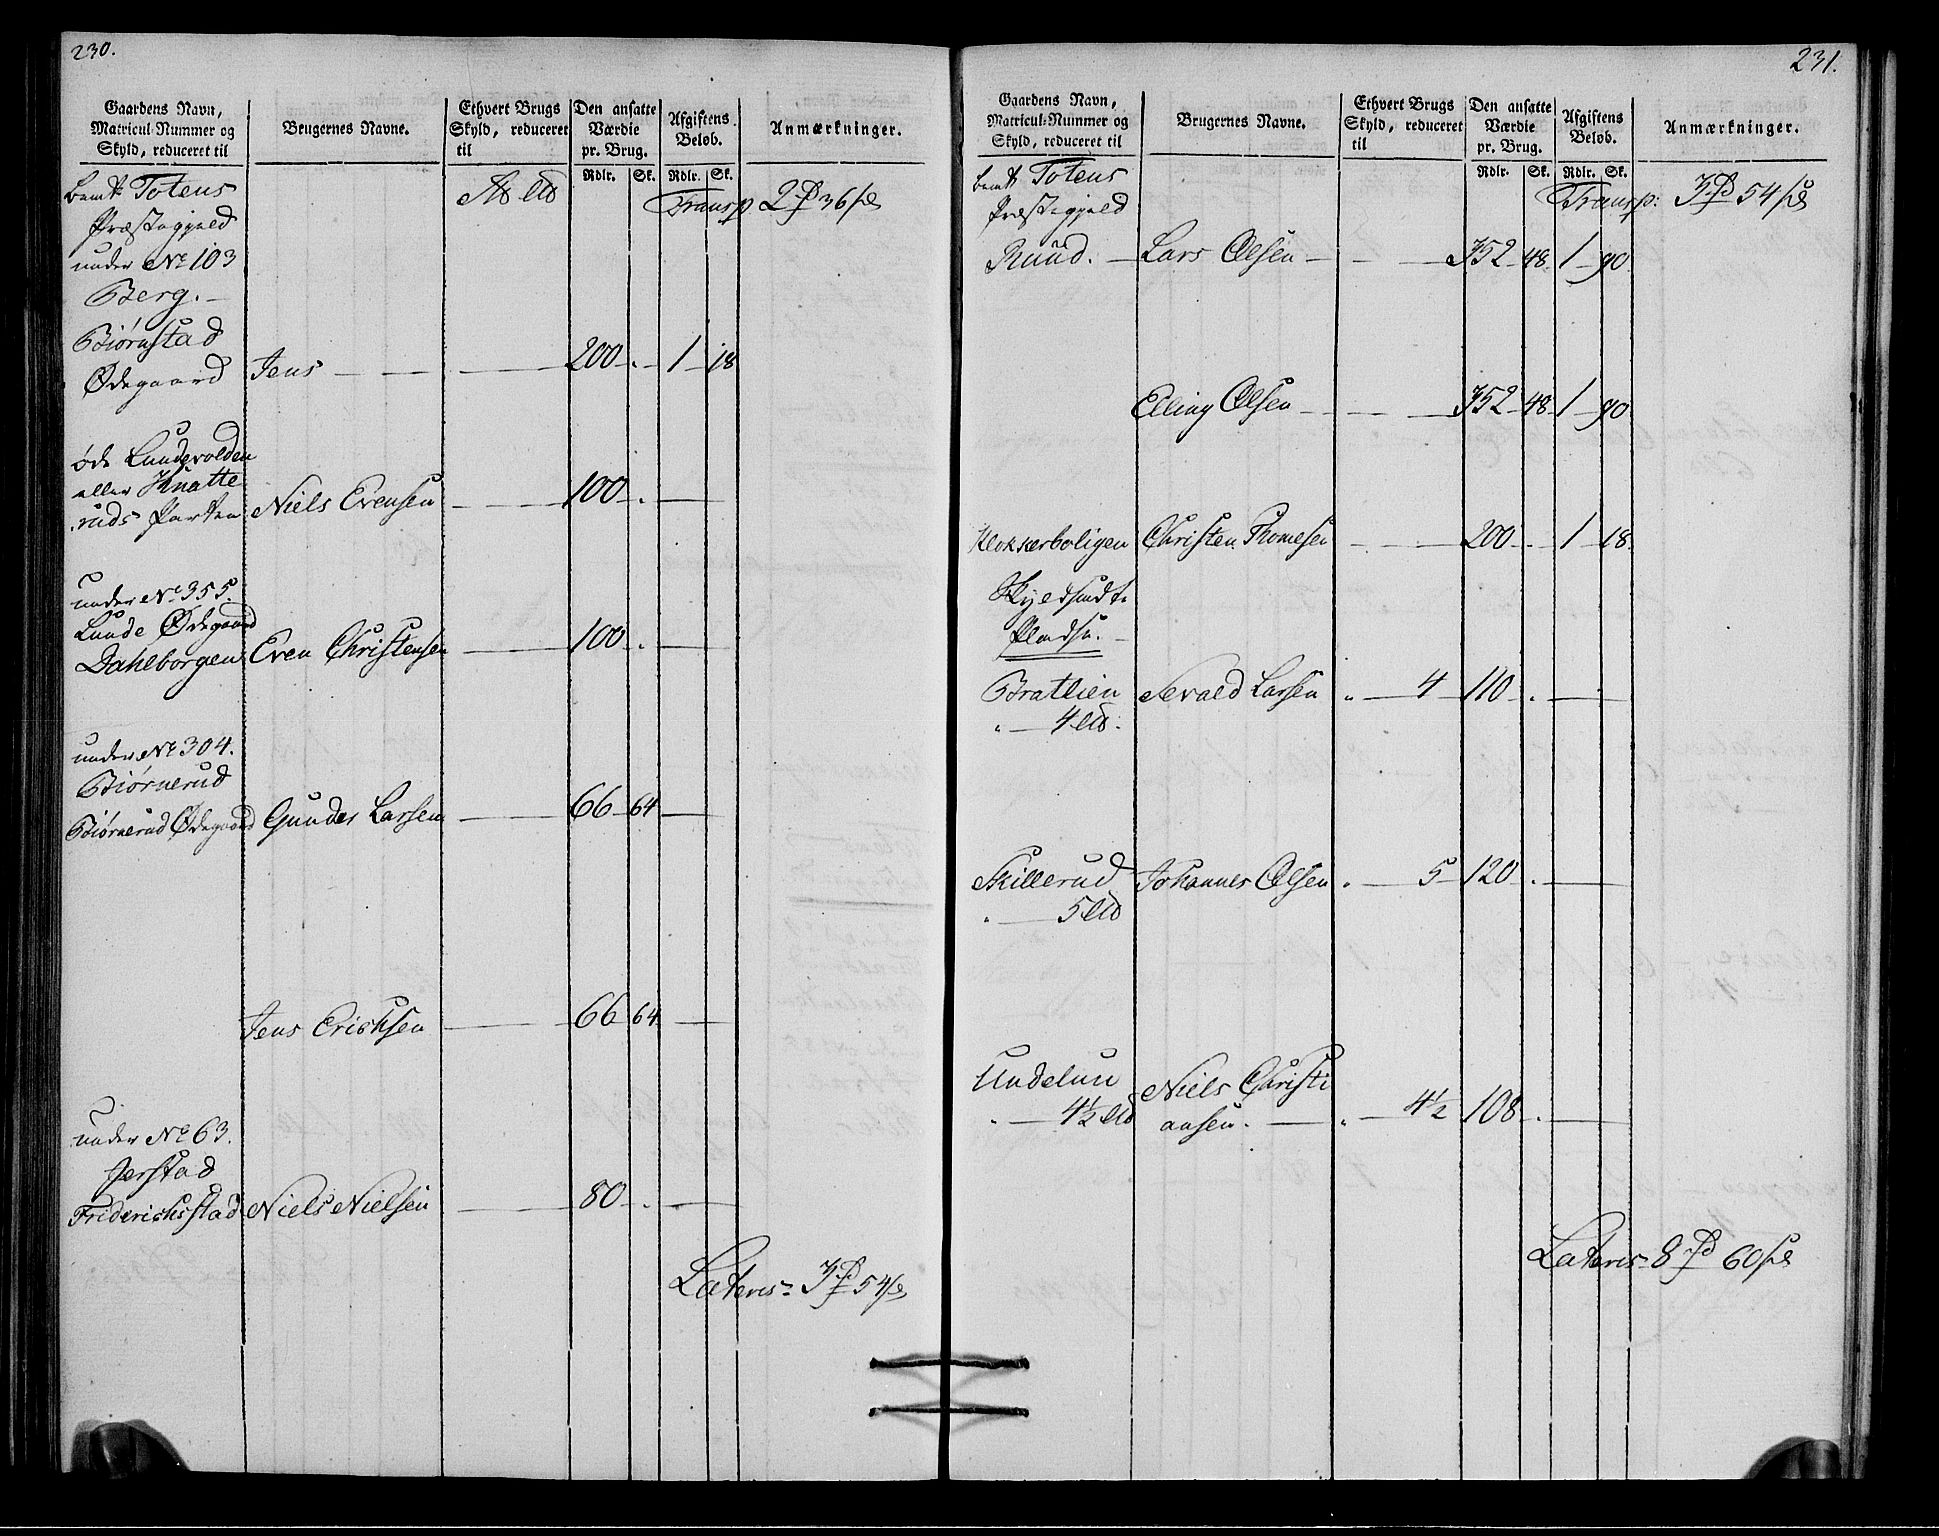 230.
Gaardens Navn, Matricul-Nummer og Skyld, reduceret til
Brugernes Navne.
Ethvert Brugs Skyld, reduceret til
Den ansatte Værdie pr. Brug.
Afgiftens Beløb.
Anmærkninger.
Rdlr. Sk. Rdlr. Sk.
bemte Totens
Præstegjeld
Transp 2 36
under No 103
Berg.
Biørnstad
Ødegaard Jens 200 1 18
øde Lundevolden
eller Knatte
ruds Parten Niels Evensen 100
under No 355.
Lunde Ødegaard
Dahlborgen Even Christensen 100
under No 304.
Biørnerud
Biørnerud Ødegaard Gunder Larsen 66 64
Jens Erichsen 66 64
under No 63.
Jerstad
Friderichsstad Niels Nielsen 80
Lateris 3 54
231.
Gaardens Navn, Matricul-Nummer og Skyld, reduceret til
Brugernes Navne.
Ethvert Brugs Skyld, reduceret til
Den ansatte Værdie pr. Brug.
Afgiftens Beløb.
Anmærkninger.
Rdlr. Sk. Rdlr. Sk.
bemte Totens
Præstegjeld
Transp: 3 54
Ruud. Lars Olsen 352 48 1 90
Elling Olsen 352 48 1 90
Klokkerboligen Christen Thomesen 200 1 18
Pladse.
Bratlien Sevald Larsen 4 110
4
Skillerud Johannes Olsen 5 120
5
Undelun Niels Christi
4½ ansen. 4½ 108
Lateris 8 60